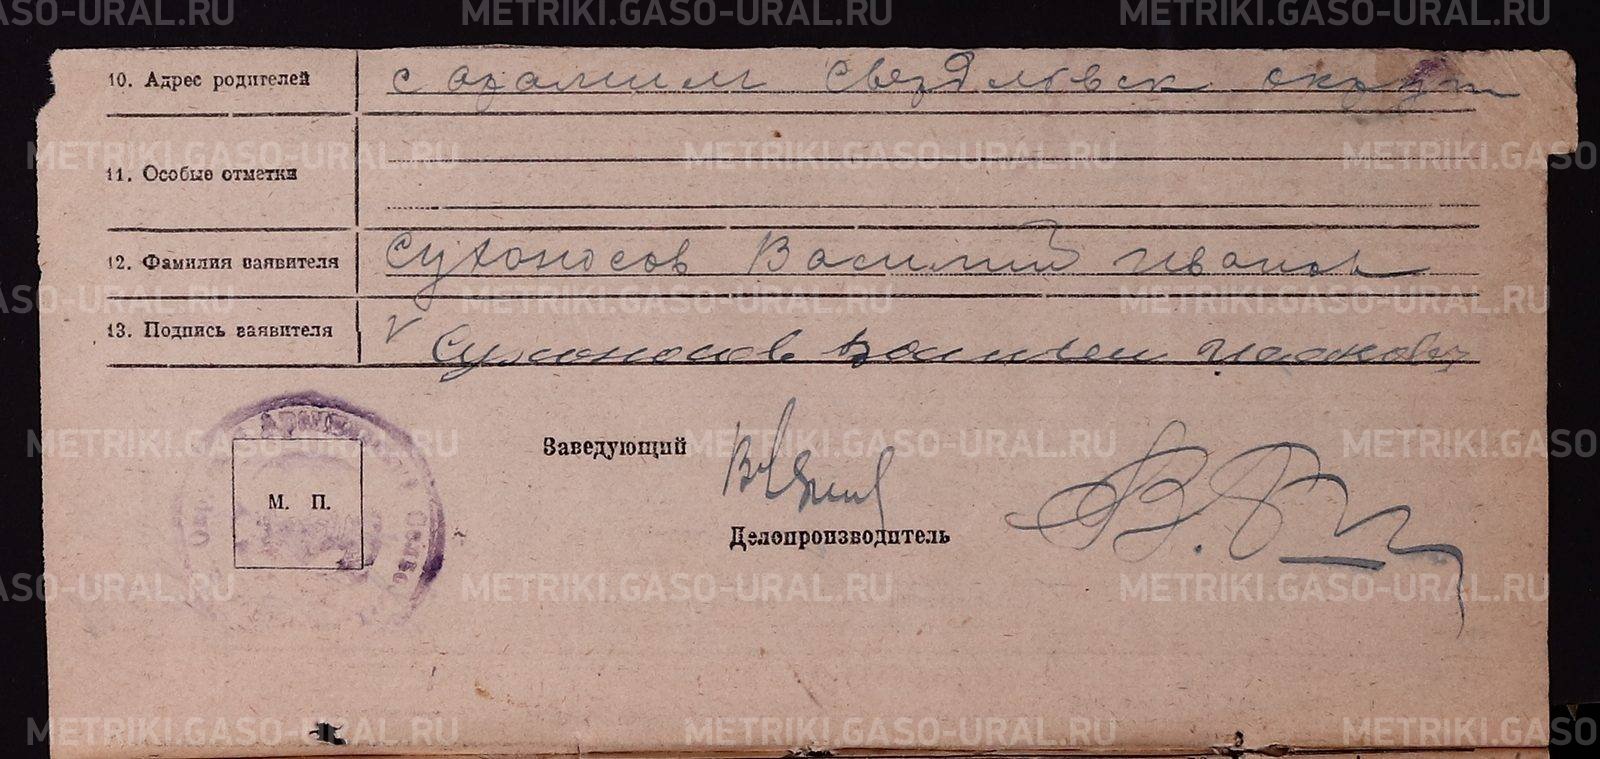 METRIKI.GASO-URAL.RU
10. Адрес родителей с Арамиль Свердловск округ
11. Особые отметки
12. Фамилия заявителя Сухоносов Василий Иванов
13. Подпись заявителя V Сухоносов Василий Иванович
Заведующий
М. П.
Делопроизводитель